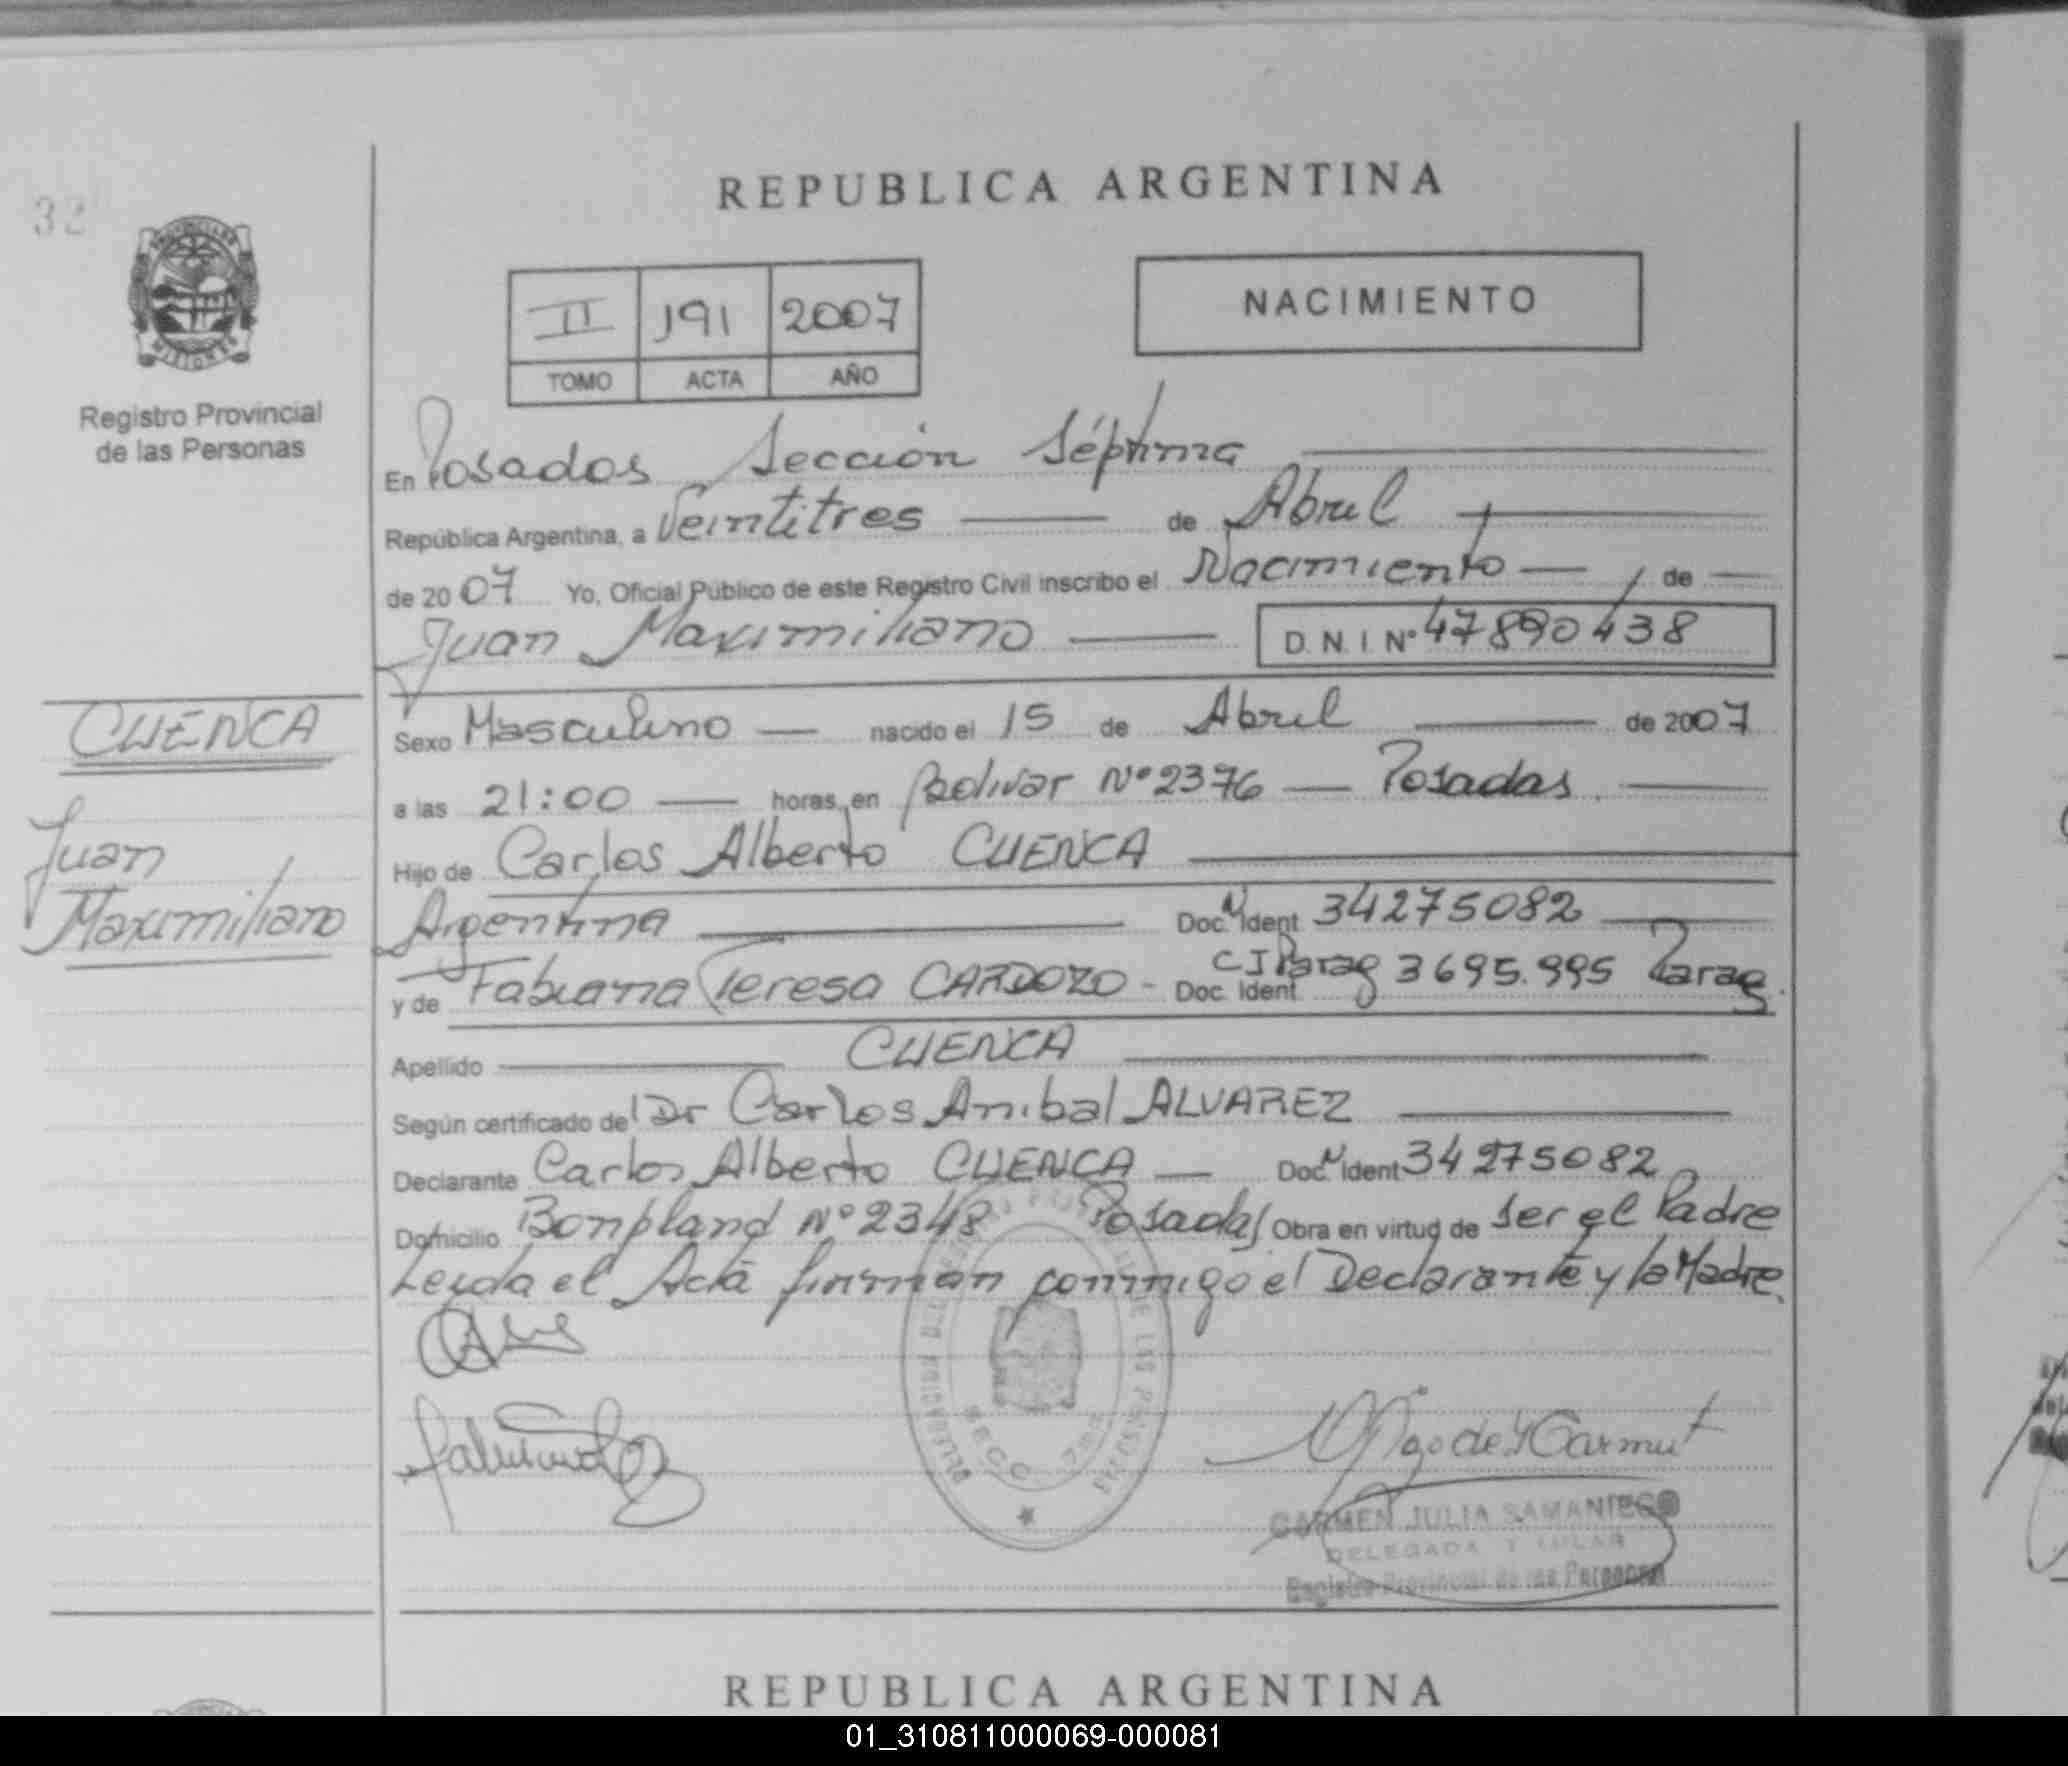 REPUBLICA ARGENTINA
32
PROVINCIA DE
MISIONES
Registro Provincial
de las Personas
II 191 2007
TOMO ACTA AÑO
NACIMIENTO
En Posadas Sección Séptima
República Argentina, a Veintitres de Abril
de 2007 Yo, Oficial Público de este Registro Civil inscribo el Nacimiento de
Juan Maximiliano D.N.I Nº 47890438
CUENCA
Juan
Maximiliano
Sexo Masculino nacido el 15 de Abril de 2007
a las 21:00 horas, en Bolivar Nº 2376 Posadas
Hijo de Carlos Alberto CUENCA
Argentina Doc. N Ident 34275082
y de Fabiana Teresa CARDOZO - Doc. Ident CI Parag 3695.995 Parag.
Apellido CUENCA
Según certificado del Dr Carlos Anibal ALVAREZ
Declarante Carlos Alberto CUENCA Doc. N Ident 34275082
Domicilio Bonpland Nº 2348 Posadas Obra en virtud de ser el Padre
Leyda el Acta firman conmigo el Declarante y la Madre.
SECC. 7ma
CARMEN JULIA SAMANIEGO
DELEGADA TITULAR
Registro Provincial de las Personas
REPUBLICA ARGENTINA
01_310811000069-000081